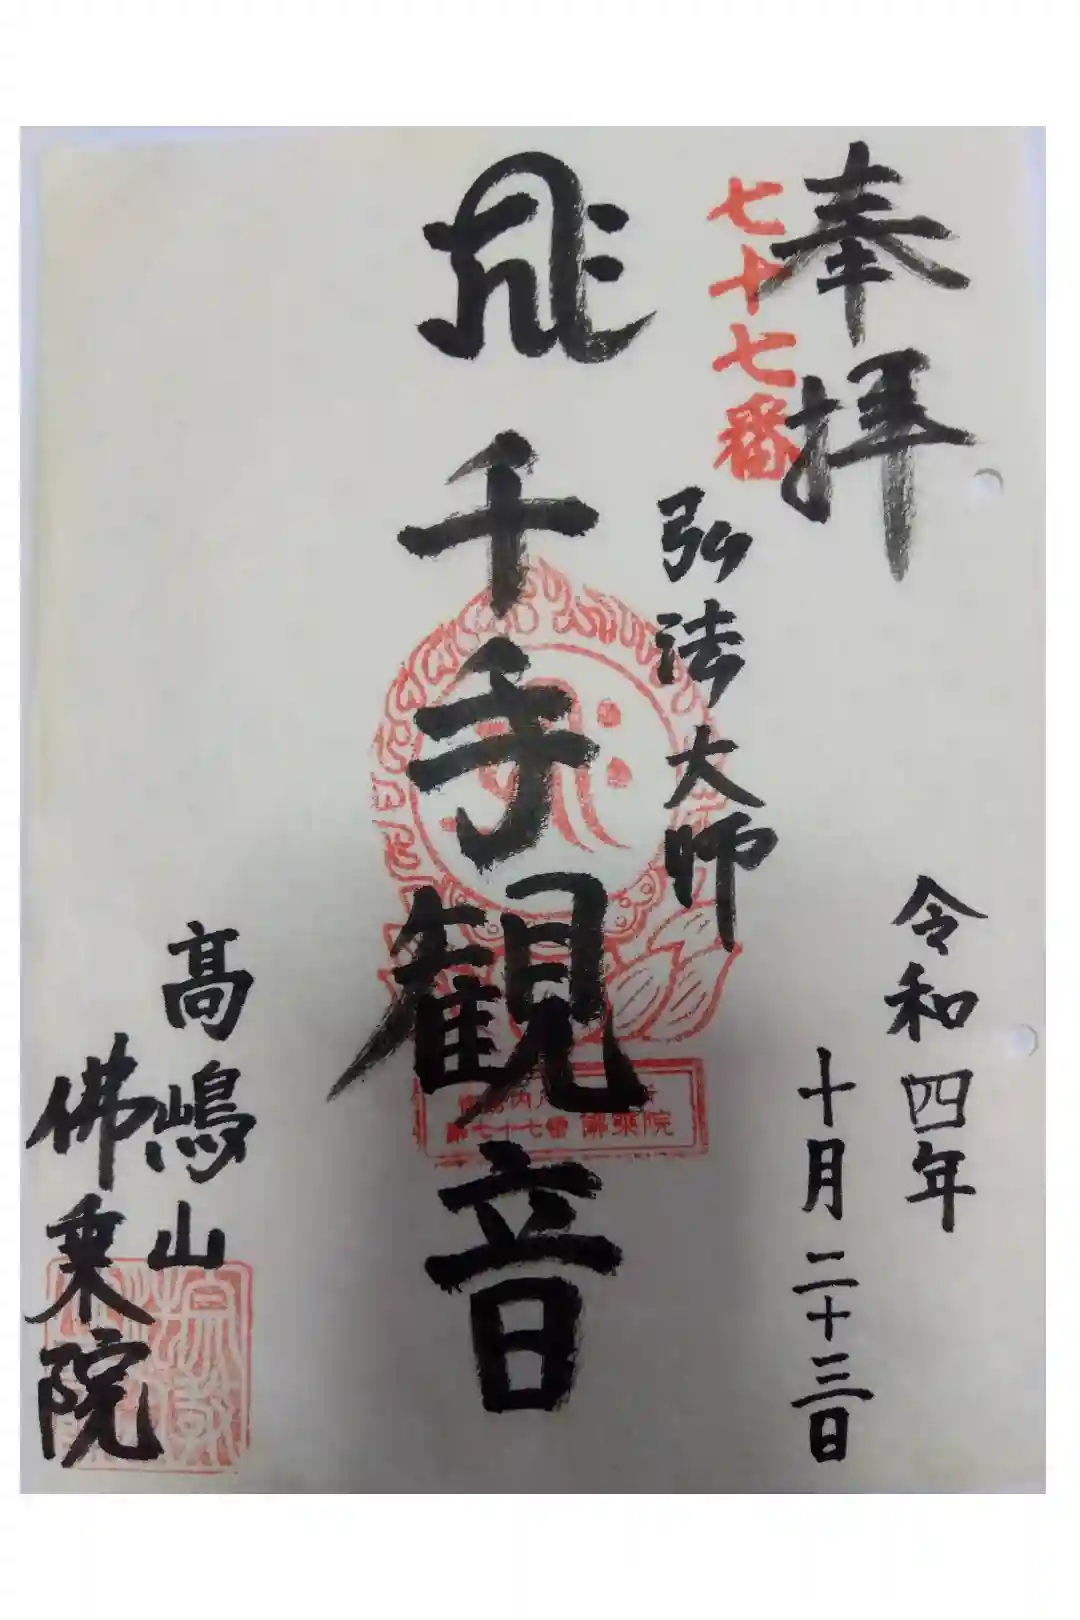 奉拝
七十七番
弘法大師
令和四年
十月二十三日
千手観音
第七十七番 佛乗院
高嶋山
佛乗院